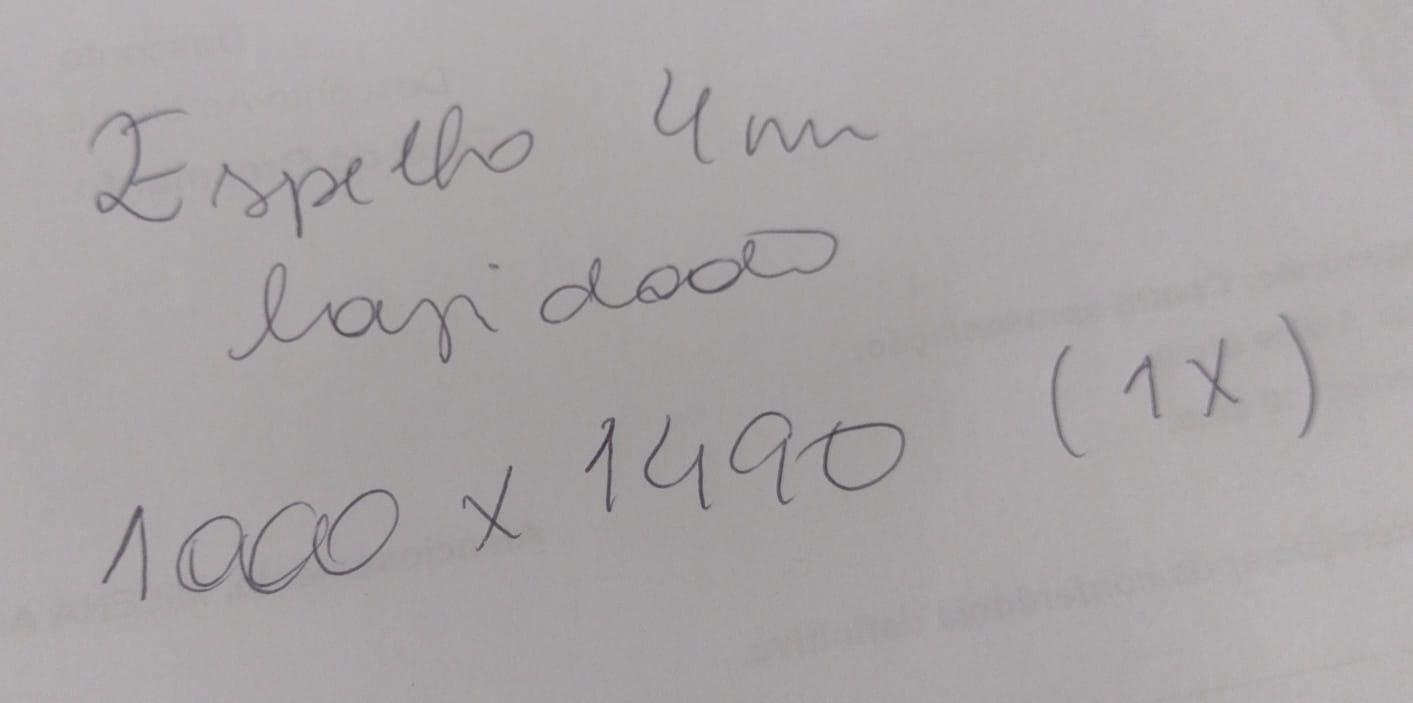 Espelho 4mm
lapidado
1000 x 1490 (1X)